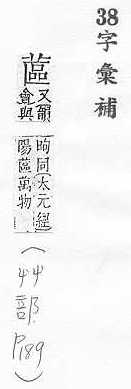 38字彙補
蓲 又韻會與昫同太元經陽蓲萬物（艸部P.189）